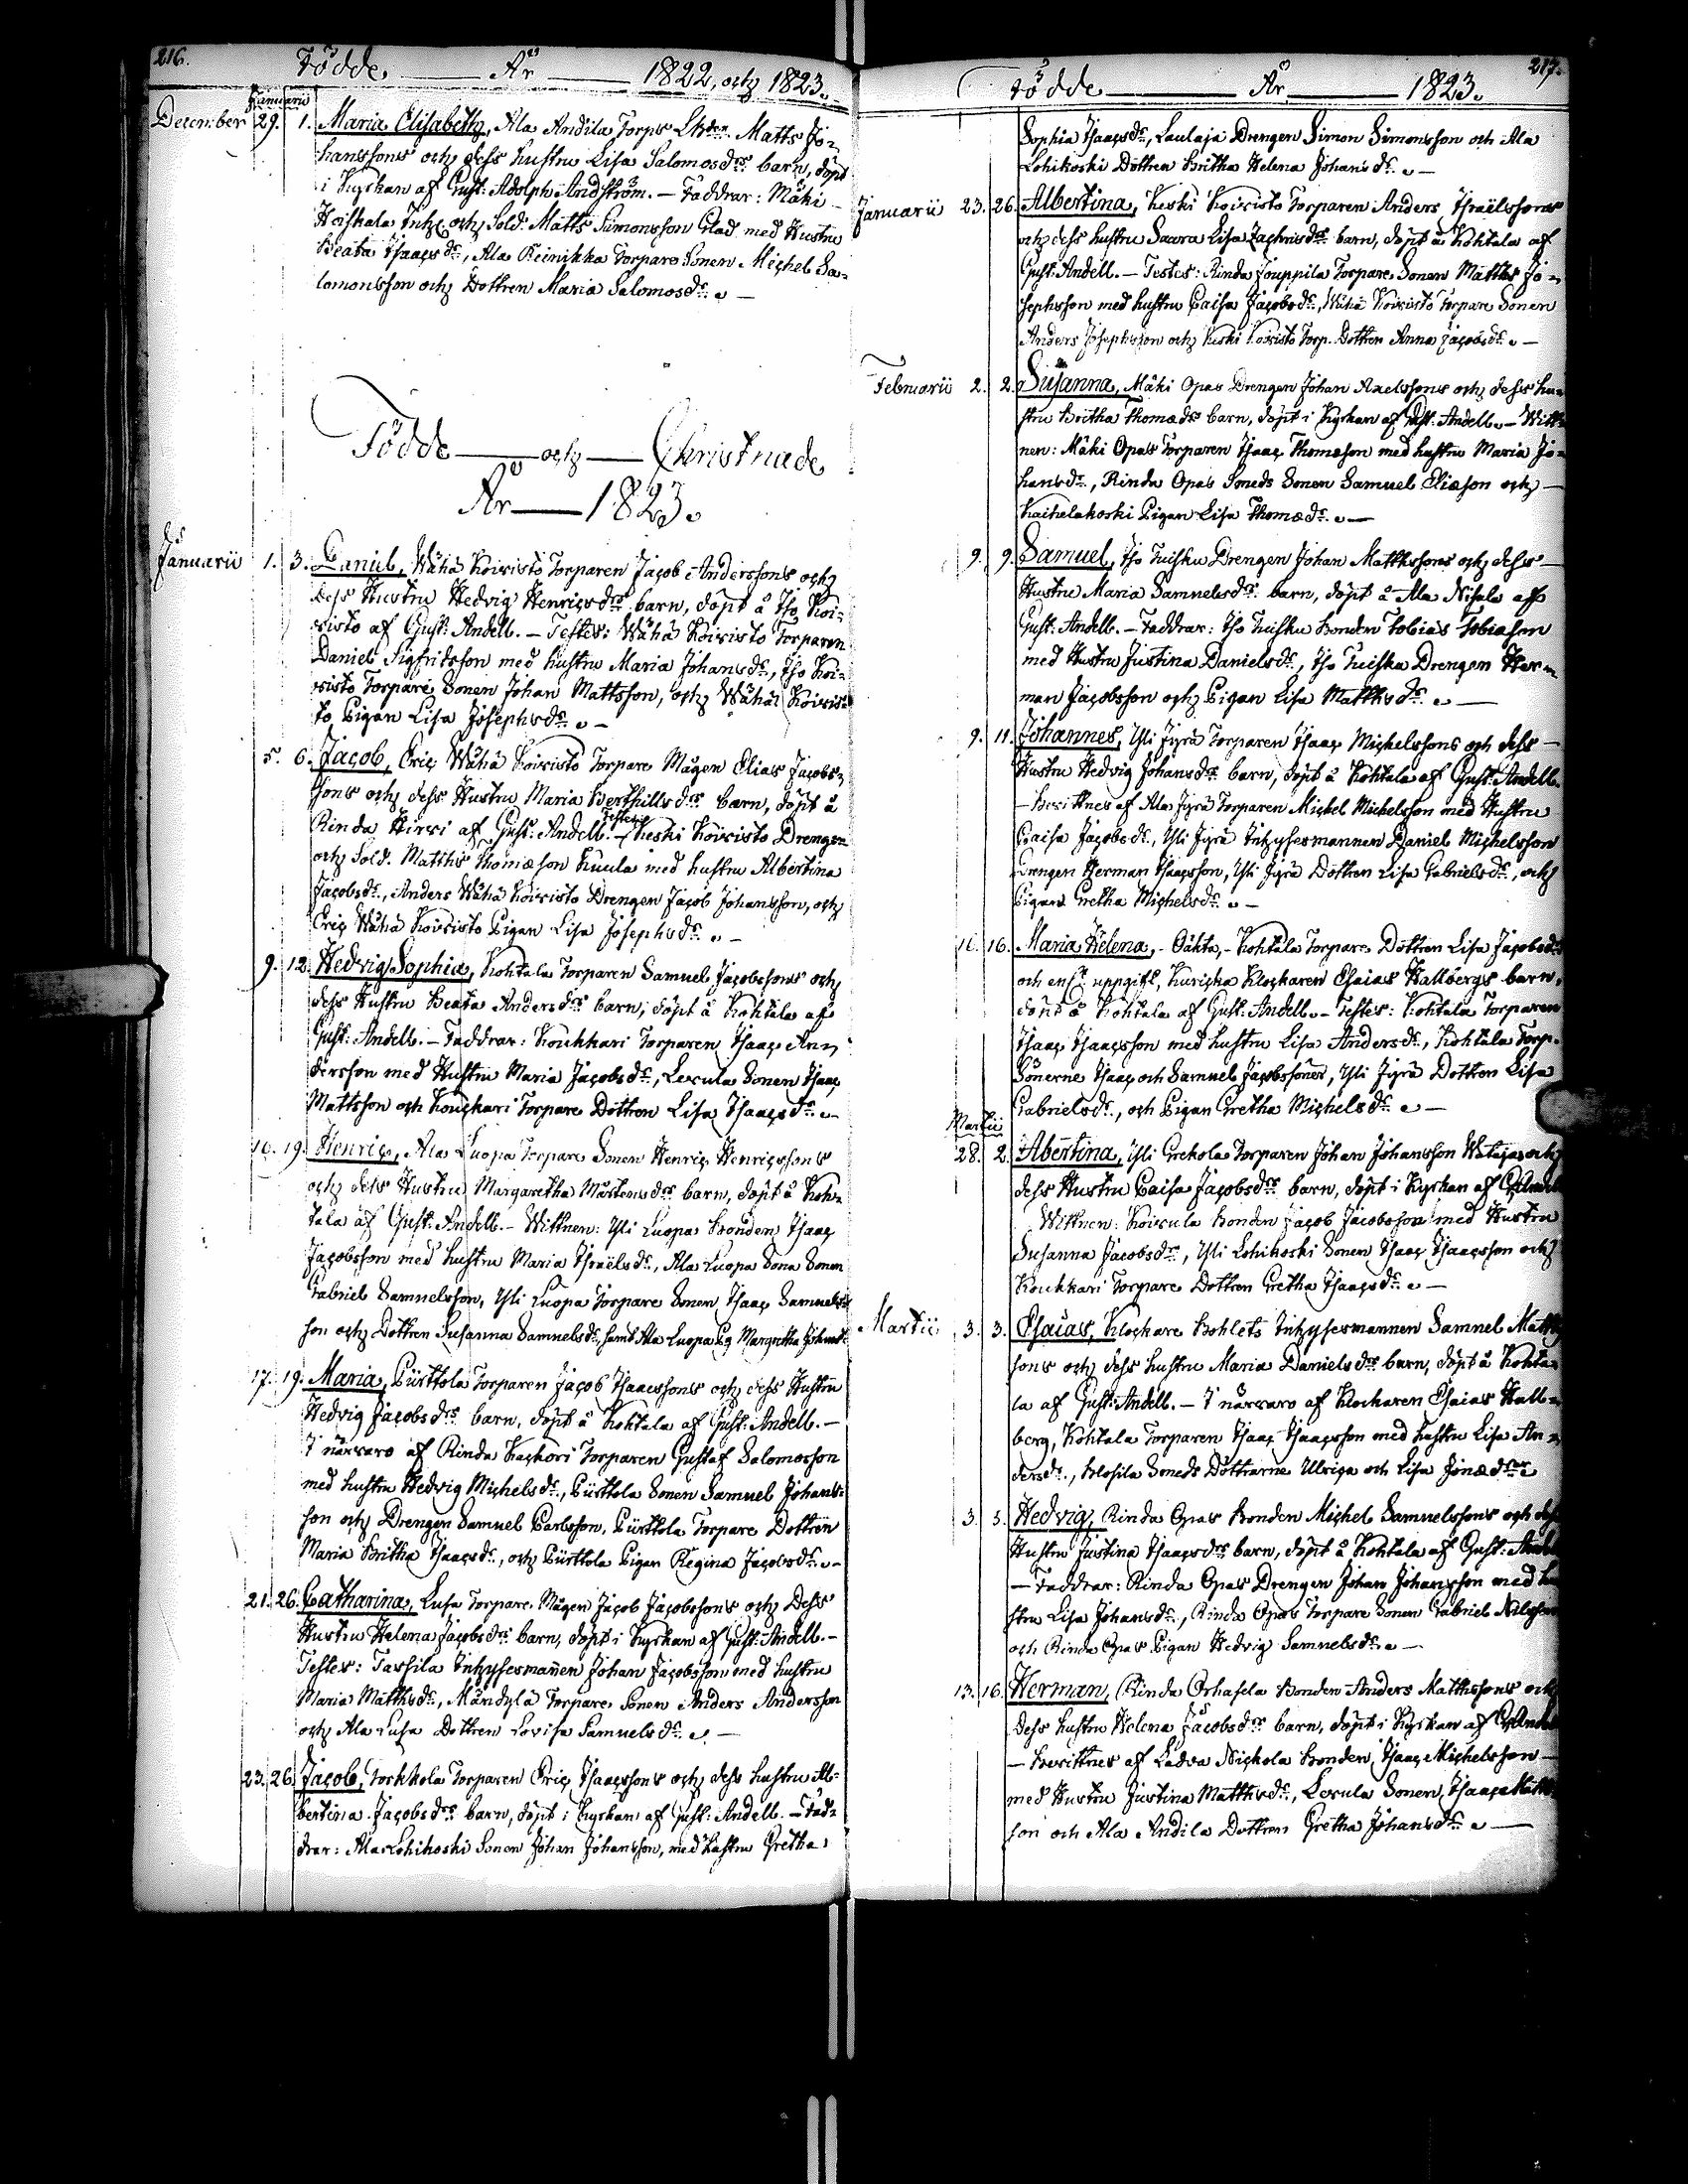 216.
Födde — År — 1822, och 1823.
Januarii
December 29. 1. Maria Elisabeth, Ala Andila Torps Matts Jo-
hanssons och dess hustru Lisa Salomosdrs barn, döpt
i Kyrkan af Gust: Adolph Andström. — Faddrar: Mäki
Heiskala Inh: och Sold: Matts Simonsson Glad med Hustru
Beata Isaacsdr, Ala Reinikka Torpare Sonen Michel Sa-
lomonsson och Dottren Maria Salomosdr. —
Födde — och — Christnade
År — 1823.
Januarii 1. 3. Daniel, Wähä Koivisto Torparen Jacob Anderssons och
dess Hustru Hedvig Henricsdrs barn, döpt å Iso Koi-
visto af Gust: Andell. — Testes: Wähä Koivisto Torparen
Daniel Sigfridsson med hustru Maria Johansdr, Iso Koi-
visto Torpare Sonen Johan Mattsson, och Wähä Koivis-
to Pigan Lisa Josephsdr. —
5. 6. Jacob, Eric Wähä Koivisto Torpare Mågen Elias Jacobs-
sons och dess Hustru Maria Berthillsdrs barn, döpt å
Rinda Hirvi af Gust: Andell. — Testes: Keski Koivisto Drengen
och Sold: Matths Thomæson Kuula med hustru Albertina
Jacobsdr, Anders Wähä Koivisto Drengen Jacob Johansson, och
Eric Wähä Koivisto Pigan Lisa Josephsdr. —
9. 12. Hedvig Sophia, Kohtala Torparen Samuel Jacobssons och
dess Hustru Beata Andersdrs barn, döpt å Kohtala af
Gust: Andell. — Faddrar: Koukkari Torparen Isaac An-
dersson med Hustru Maria Jacobsdr, Lexula Sonen Isaac
Mattsson och Kouckari Torpare Dottren Lisa Isaacsdr. —
16. 19. Henric, Ala Luopa Torpare Sonen Henric Henricssons
och dess Hustru Margaretha Mårtensdrs barn, döpt å Koh-
tala af Gust: Andell. — Wittnen: Yli Luopa Bonden Isaac
Jacobsson med hustru Maria Israëlsdr, Ala Luopa Sona Sonen
Gabriel Samuelsson, Yli Luopa Torpare Sonen Isaac Samuels-
son och Dottren Susanna Samuelsdr, samt Ala Luopa Pig. Margretha Johansdr
17. 19. Maria, Pürttola Torparen Jacob Isaacssons och dess Hustru
Hedvig Jacobsdrs barn, döpt å Kohtala af Gust: Andell. —
I närvaro af Rinda Kackori Torparen Gustaf Salomosson
med hustru Hedvig Michelsdr, Pürttola Sonen Samuel Johans-
son och Drengen Samuel Carlsson, Pürttola Torpare Dottren
Maria Britha Isaacsdr, och Pürttola Pigan Regina Jacobsdr. —
21. 26. Catharina, Lusa Torpare Mågen Jacob Jacobssons och Dess
Hustru Helena Jacobsdrs barn, döpt i Kyrkan af Gust: Andell. —
Testes: Tassila Inhysesmannen Johan Jacobsson med hustru
Maria Matthsdr, Mändylä Torpare Sonen Anders Andersson
och Ala Lusa Dottren Lovisa Samuelsdr. —
23. 26. Jacob, Torkkola Torparen Eric Isaacssons och dess hustru Al-
bertina Jacobsdrs barn, döpt i Kyrkan af Gust: Andell. — Fad-
drar: Ala Lohikoski Sonen Johan Johansson, med hustru Gretha
217.
Födde — År — 1823.
Sophia Isaacsdr, Laulaja Drengen Simon Simonsson och Ala
Lohikoski Dottren Britha Helena Johansdr. —
Januarii 23. 26. Albertina, Keski Koivisto Torparen Anders Israëlssons
och dess hustru Saara Lisa Zachrisdrs barn, döpt å Kohtala af
Gust: Andell. — Testes: Rinda Jouppila Torpare Sonen Matths Jo-
sephsson med hustru Caisa Jacobsdr, Wähä Koivisto Torpare Sonen
Anders Josephsson och Keski Koivisto Torp. Dottren Anna Jacobsdr. —
Februarii 2. 2. Susanna, Mäki Opas Drengen Johan Axelssons och dess hu-
stru Britha Thomædrs barn, döpt i Kyrkan af Gust: Andell. — Witt-
nen: Mäki Opas Torparen Isaac Thomæson med hustru Maria Jo-
hansdr, Rinda Opas Smeds Sonen Samuel Eliæson och
Kaihelakoski Pigan Lisa Thomædr. —
9. 9. Samuel, Iso Tuisku Drengen Johan Matthssons och dess
Hustru Maria Samuelsdrs barn, döpt å Ala Nisula af
Gust: Andell. — Faddrar: Iso Tuisku Bonden Tobias Tobiason
med Hustru Justina Danielsdr, Iso Tuisku Drengen Her-
man Jacobsson och Pigan Lisa Matthsdr. —
9. 11. Johannes, Yli Jyrä Torparen Isaac Michelssons och dess
Hustru Hedvig Johansdrs barn, döpt å Kohtala af Gust: Andell.
— Bevittnes af Ala Jyrä Torparen Michel Michelsson med Hustru
Caisa Jacobsdr, Yli Jyrä Inhysesmannen Daniel Michelsson
Drengen Herman Isaacsson, Yli Jyrä Dottren Lisa Gabrielsdr, och
Pigan Gretha Michelsdr. —
16. 16. Maria Helena, Oäkta, Kohtala Torpare Dottren Lisa Jacobsdrs
och enl: uppgift, Kuricka Klockaren Esaias Hallbergs barn,
döpt å Kohtala af Gust: Andell. — Testes: Kohtala Torparen
Isaac Isaacsson med hustru Lisa Andersdr, Kohtala Torp.
Sönerne Isaac och Samuel Jacobssöner, Yli Jyrä Dottren Lisa
Gabrielsdr, och Pigan Gretha Michelsdr. —
Martii
28. 2. Albertina, Yli Grekola Torparen Johan Johansson och
dess Hustru Caisa Jacobsdrs barn, döpt i Kyrkan af
Wittnen: Koivula Bonden Jacob Jacobsson med Hustru
Susanna Jacobsdr, Yli Lohikoski Sonen Isaac Isaacsson och
Koukkari Torpare Dottren Gretha Isaacsdr. —
Martii 3. 3. Esaias, Klockare Bohlets Inhysesmannen Samuel Matths
sons och dess hustru Maria Danielsdrs barn, döpt å Kohta-
la af Gust: Andell. — I närvaro af Klockaren Esaias Hall-
berg, Kohtala Torparen Isaac Isaacsson med hustru Lisa An-
dersdr, Smeds Döttrarne Ulrica och Lisa Jonædrar
3. 3. Hedvig, Rinda Opas Bonden Michel Samuelssons och dess
Hustru Justina Isaacsdrs barn, döpt å Kohtala af Gust:
— Faddrar: Rinda Opas Drengen Johan Johansson med hu
stru Lisa Johansdr, Rinda Opas Torpare Sonen Gabriel Nilsson
och Rinda Opas Pigan Hedvig Samuelsdr. —
13. 16. Herman, Rinda Orhasela Bonden Anders Matthssons och
dess hustru Helena Jacobsdrs barn, döpt i Kyrkan af
— Bevittnes af Ladva Nickola Bonden Isaac Michelsson
med Hustru Justina Matthsdr, Lexula Sonen Isaac
son och Ala Andila Dottren Gretha Johansdr. —